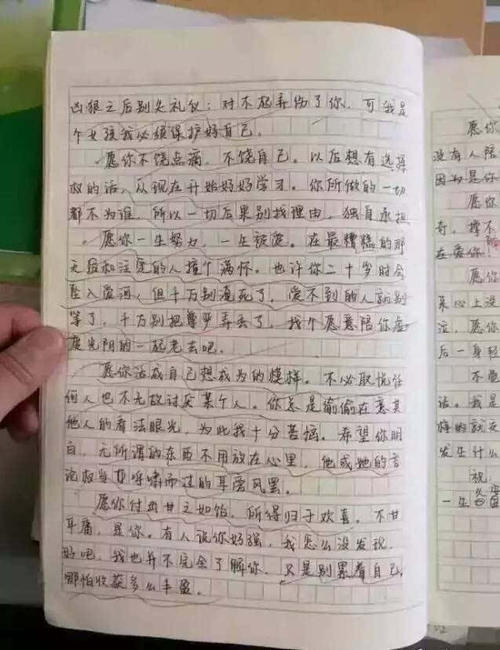 凶狠之后别失礼仪：对不起弄伤了你，可我是
个女孩我必须保护好自己。
愿你不饶点滴，不饶自己。以后想有选择
权的话，从现在开始好好学习。你所做的一切
都不为谁，所以一切后果别找理由，独自承担
愿你一生努力，一生被爱。在最糟糕的那
天后和注定的人撞个满怀。也许你二十岁时会
坠入爱河，但千万别淹死了，爱不到的人就别
等了，千万别把尊严弄丢了，找个愿意陪你虚
度光阴的一起老去吧。
愿你活成自己想成为的模样。不必取悦任
何人也不无故讨厌某个人。你总是偷偷在意其
他人的看法眼光，为此我十分苦恼。希望你明
白，无所谓的东西不用放在心里，他或她的言
论权当是呼啸而过的耳旁风罢。
愿你付出甘之如饴，所得归于欢喜。不甘
平庸，是你。有人说你好强，我怎么没发现。
好吧，我也并不完全了解你，只是别累着自己，
哪怕收获多么丰盈。
愿你
没有人陪
因为是你
愿你
奇，撑不
在爱你
愿你
某心上没
泣，愿你
后一身轻
不要
话。我是
悔的就是
发生什么
祝
一生